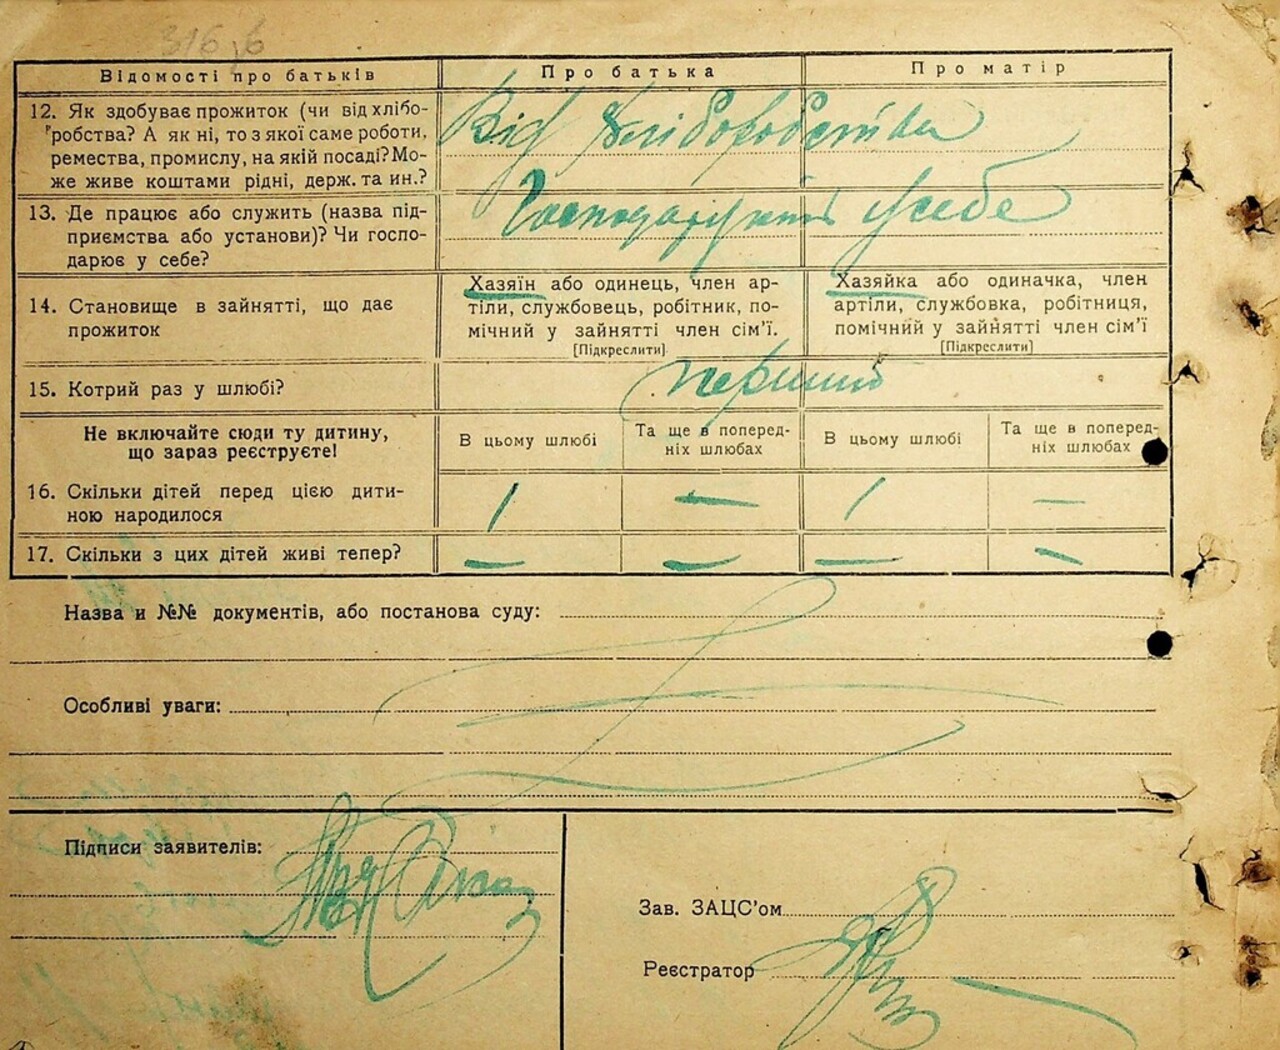 316
Відомості про батьків
Про батька
Про матір
12. Як здобуває прожиток (чи від хлібо-
робства? А як ні, то з якої саме роботи,
ремества, промислу, на якій посаді? Мо-
же живе коштами рідні, держ. та ин.?
Від хліборобства
13. Де працює або служить (назва під-
приємства або установи)? Чи госпо-
дарює у себе?
Господарують у себе
14. Становище в зайнятті, що дає
прожиток
Хазяїн або одинець, член ар-
тіли, службовець, робітник, по-
мічний у зайнятті член сім'ї.
[Підкреслити]
Хазяйка або одиначка, член
артіли, службовка, робітниця,
помічний у зайнятті член сім'ї
[Підкреслити]
15. Котрий раз у шлюбі?
перший
Не включайте сюди ту дитину,
що зараз реєструєте!
В цьому шлюбі
Та ще в поперед-
ніх шлюбах
В цьому шлюбі
Та ще в поперед-
ніх шлюбах
16. Скільки дітей перед цією дити-
ною народилося
1 — 1 —
17. Скільки з цих дітей живі тепер?
— — — —
Назва и №№ документів, або постанова суду:
Особливі уваги:
Підписи заявителів:
Зав. ЗАЦС'ом
Реєстратор